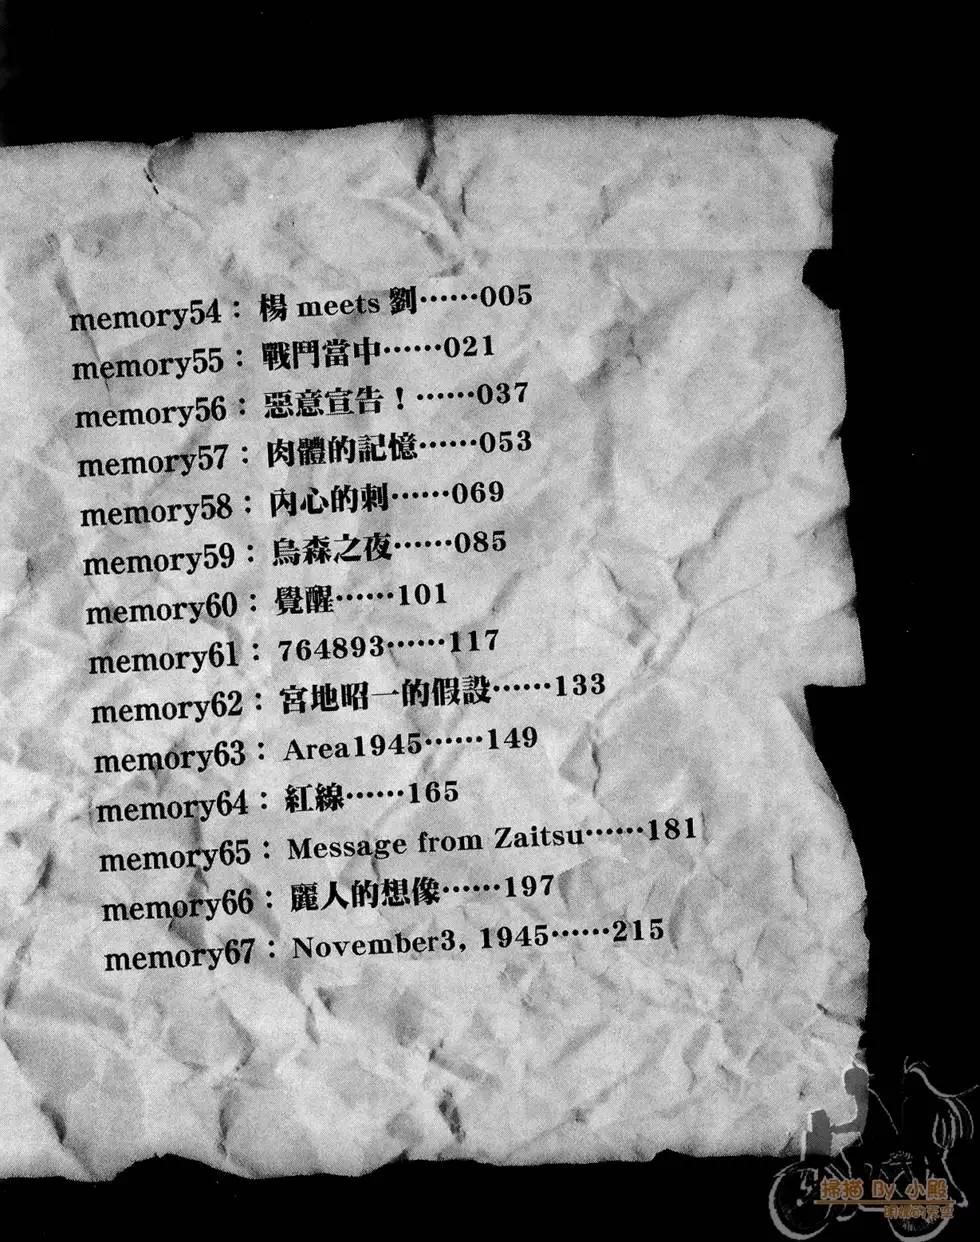 memory54：楊 meets 劉⋯⋯005
memory55：戰鬥當中⋯⋯021
memory56：惡意宣告！⋯⋯037
memory57：肉體的記憶⋯⋯053
memory58：內心的刺⋯⋯069
memory59：烏森之夜⋯⋯085
memory60：覺醒⋯⋯101
memory61：764893⋯⋯117
memory62：宮地昭一的假設⋯⋯133
memory63：Area1945⋯⋯149
memory64：紅線⋯⋯165
memory65：Message from Zaitsu⋯⋯181
memory66：麗人的想像⋯⋯197
memory67：November3, 1945⋯⋯215
掃描 By 小殿